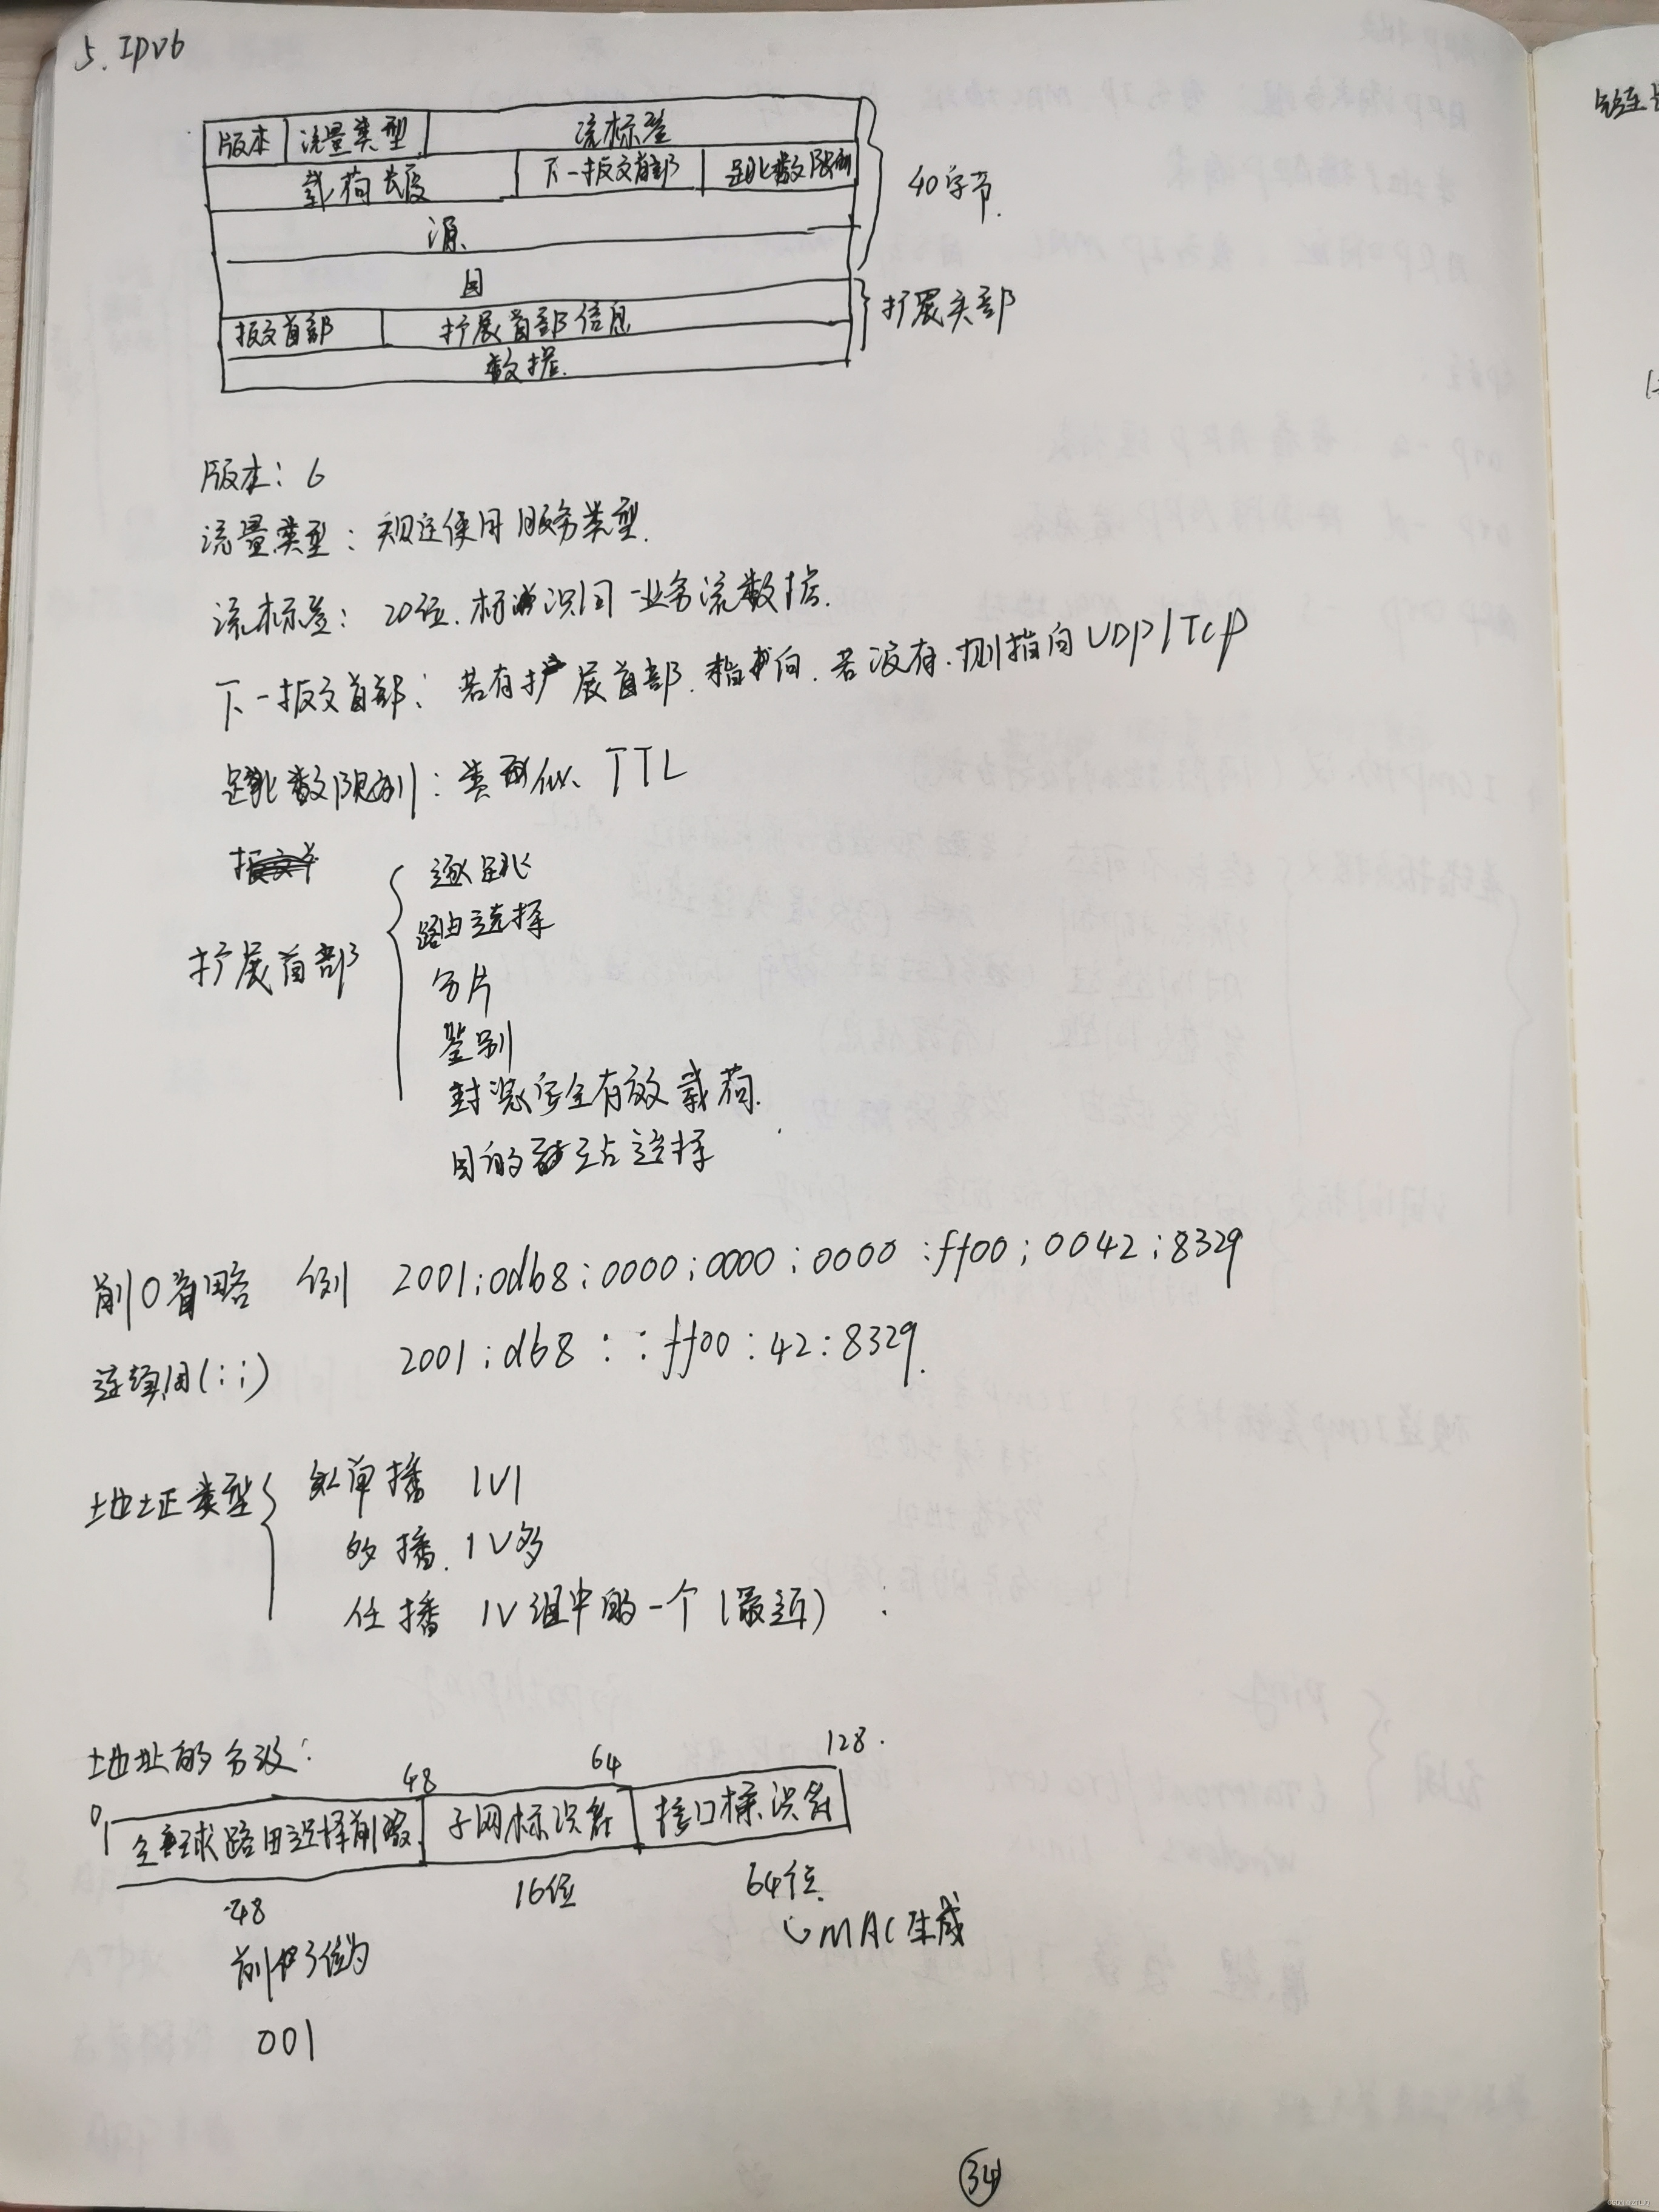 5. IPv6
版本 流量类型 流标签
载荷长度 下一报文首部 跳数限制
40字节.
源
目
报文首部 扩展首部信息
扩展头部
数据.
版本: 6
流量类型: 规定使用服务类型.
流标签: 20位.标识同一业务流数据.
下一报文首部: 若有扩展首部.指向.若没有.则指向UDP/TCP
跳数限制: 类似 TTL
扩展首部
逐跳
路由选择
分片
鉴别
封装安全有效载荷.
目的站选择
前0省略 例 2001:0db8:0000:0000:0000:ff00:0042:8329
连续用(::) 2001:db8::ff00:42:8329.
地址类型
单播 1V1
多播. 1V多
任播 1V组中的一个(最近)
地址的分级:
0 48 64 128.
全球路由选择前缀 子网标识符 接口标识符
48 16位 64位.
MAC生成
前3位为
001
34